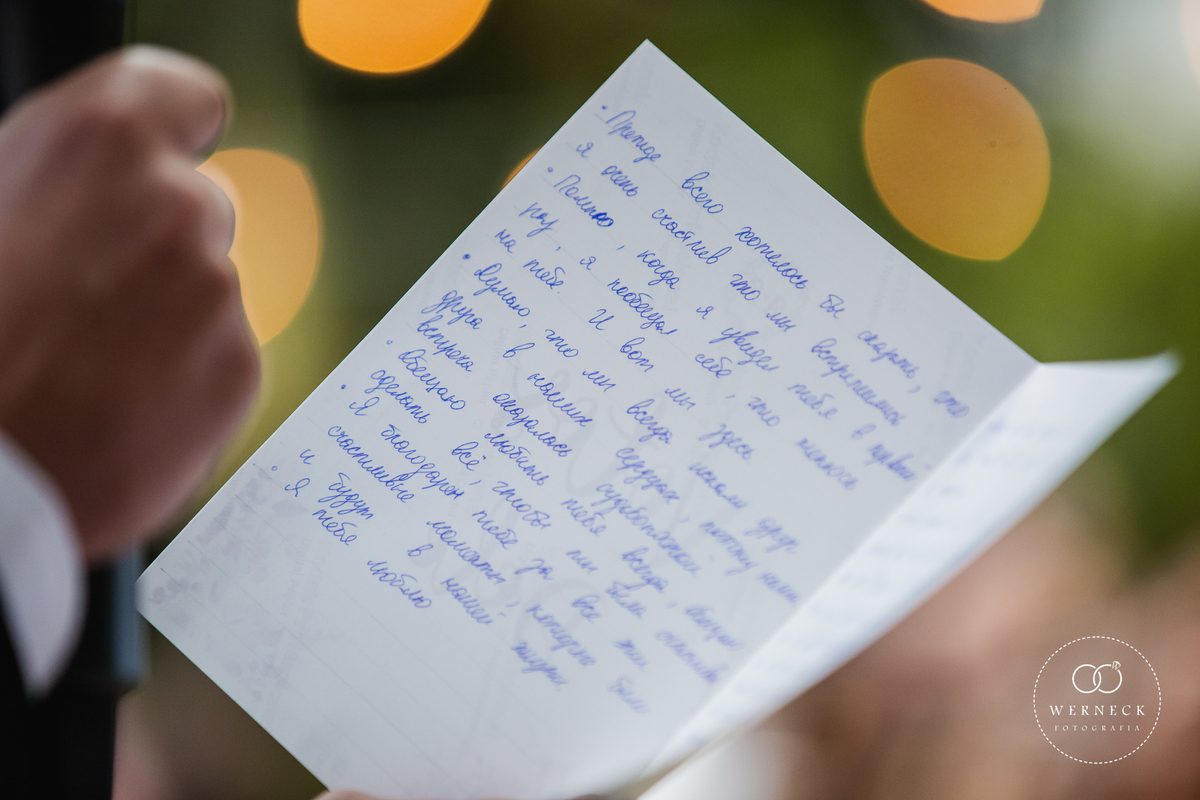 • Прежде всего хотелось бы сказать, что
я очень счастлив что мы встретились
• Помню, когда я увидел тебя в первый
раз, я пообещал себе, что женюсь
на тебе. И вот мы здесь
• Думаю, что мы всегда искали друг
друга в наших сердцах, потому наша
встреча оказалась судьбоносной
• Обещаю любить тебя всегда,
сделать всё, чтобы мы были счастливы
• Я благодарен тебе за все те
счастливые моменты, которые были
и будут в нашей жизни.
• Я тебя люблю
WERNECK
FOTOGRAFIA